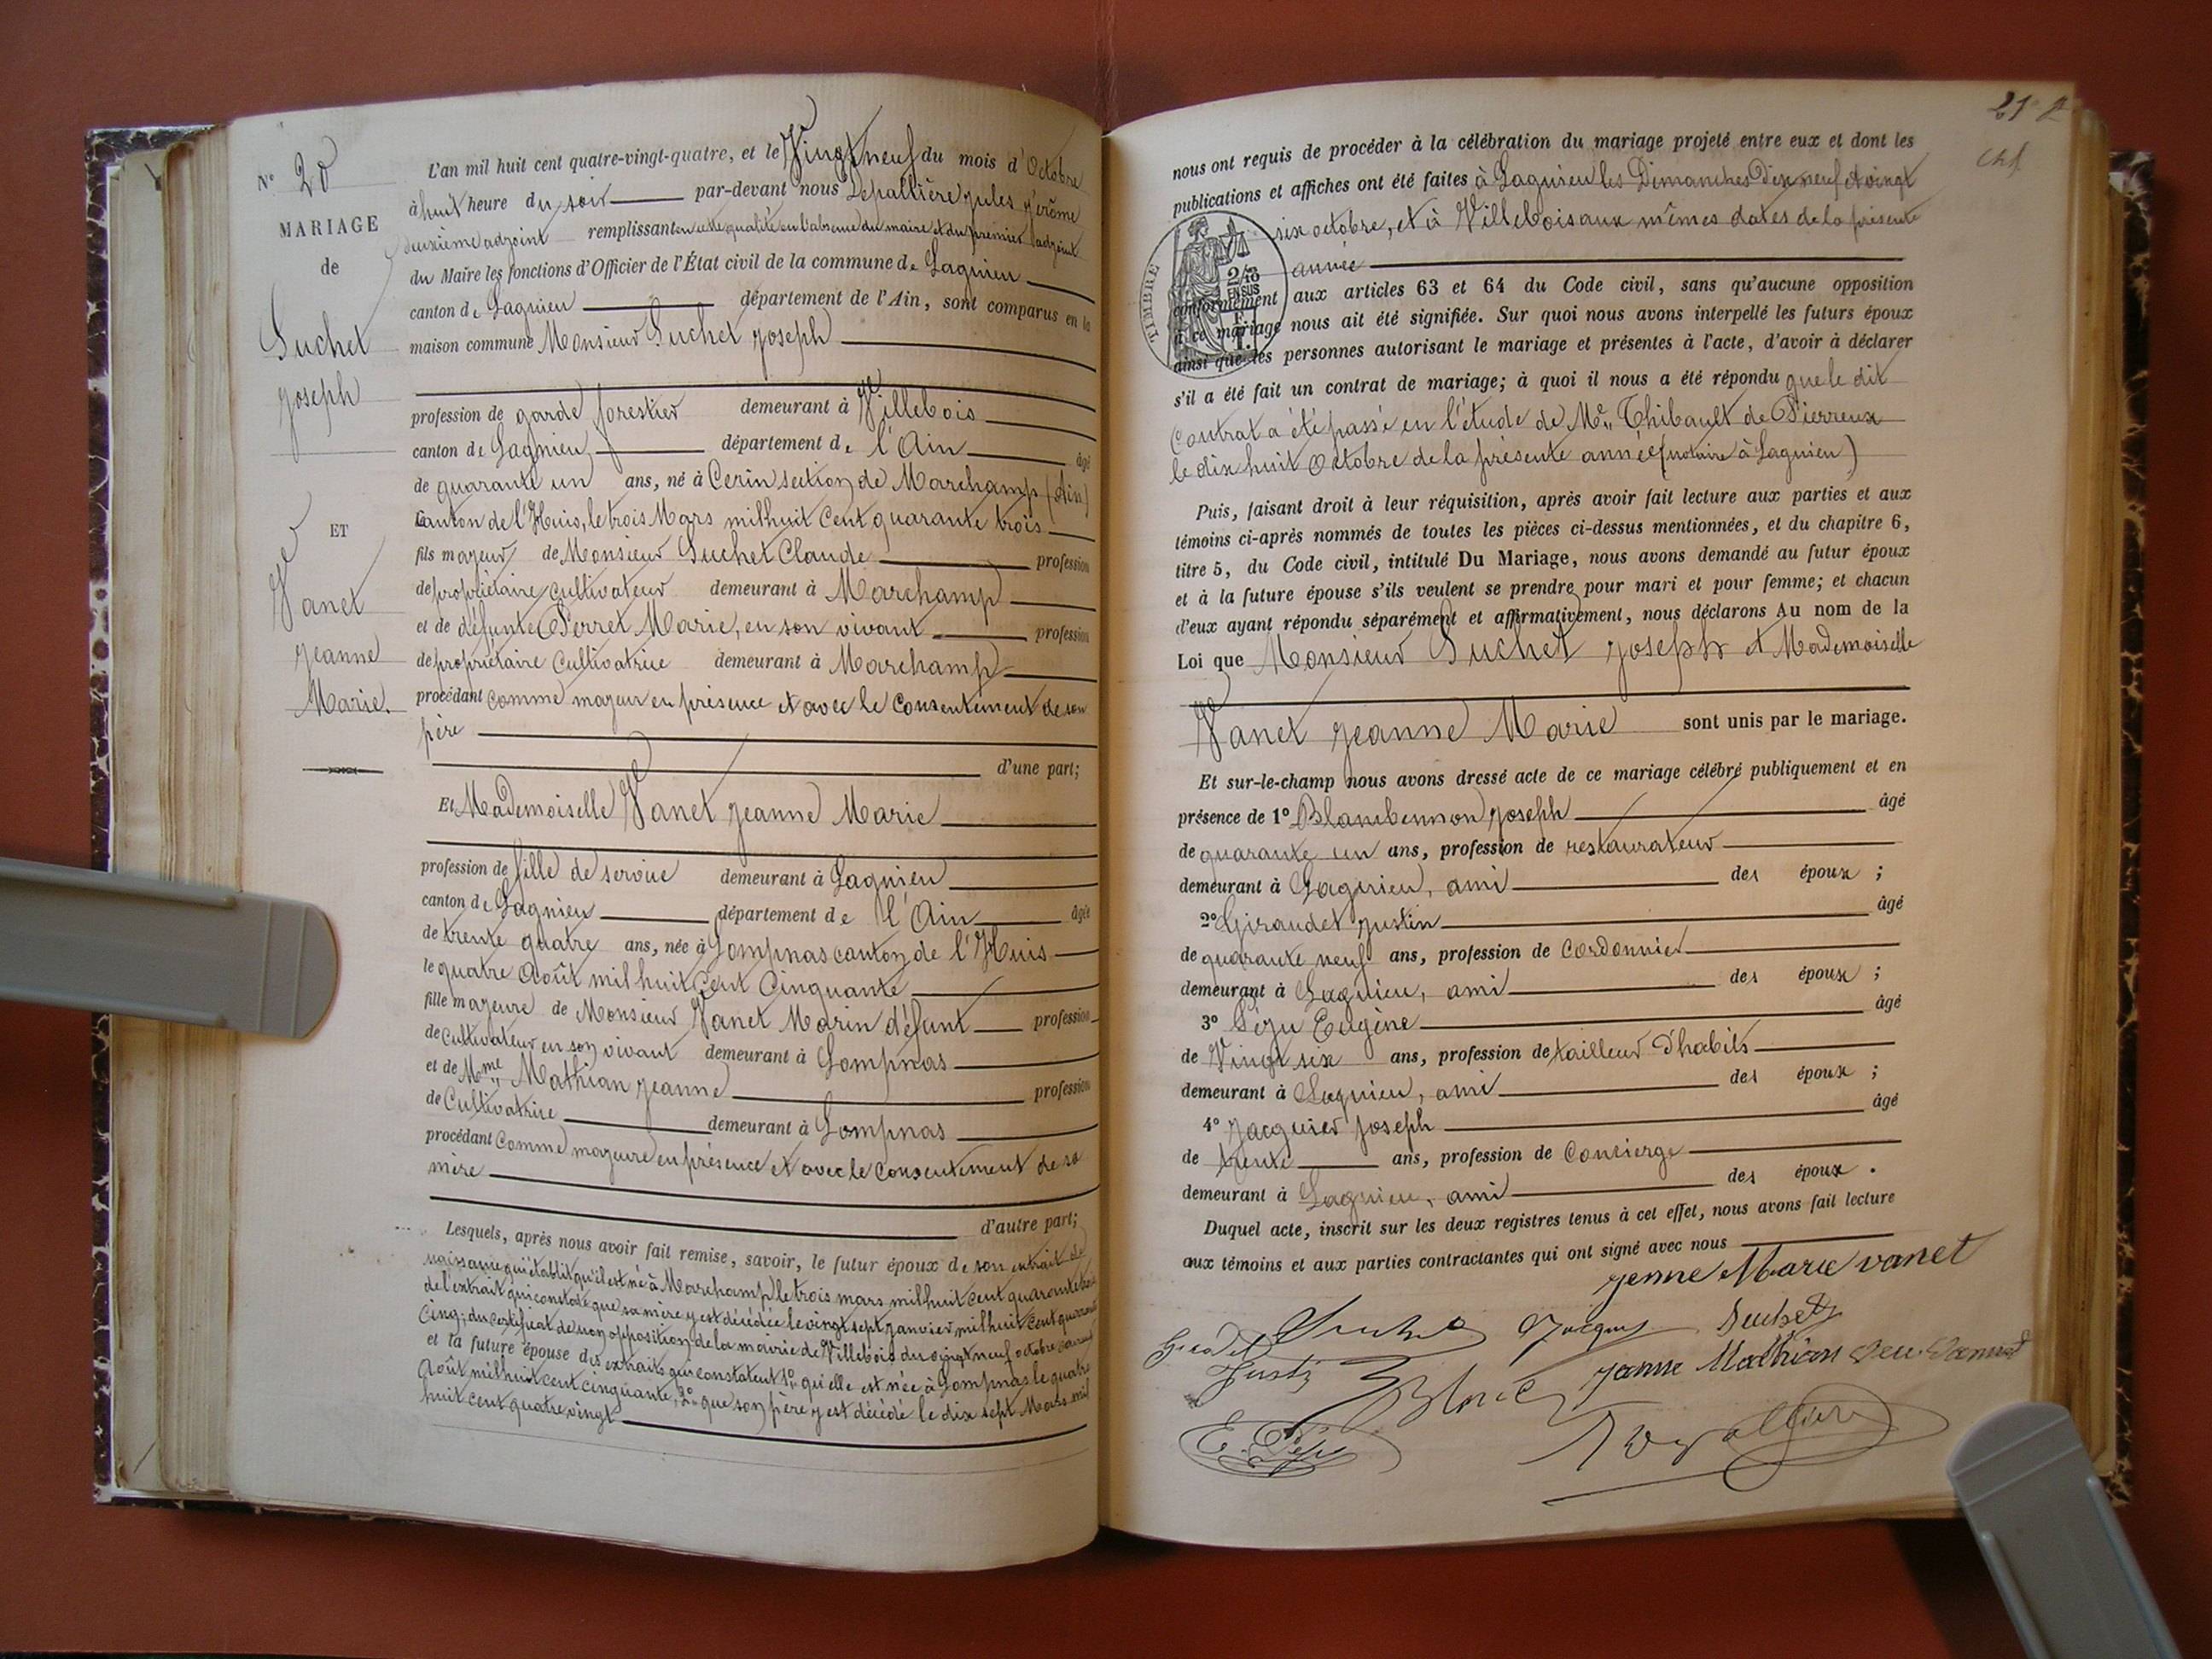 N° 20
MARIAGE
de
Suchet
Joseph
ET
Vanet
Jeanne
Marie.
L'an mil huit cent quatre-vingt-quatre, et le Vingt neuf du mois d'Octobre
à huit heure du soir par-devant nous Depallière Jules Jérôme
deuxième adjoint remplissant en cette qualité en l'absence du maire et du premier adjoint
du Maire les fonctions d'Officier de l'État civil de la commune de Lagnieu
canton de Lagnieu département de l'Ain, sont comparus en la
maison commune Monsieur Suchet Joseph
profession de garde forestier demeurant à Villebois
canton de Lagnieu département de l'Ain âgé
de quarante un ans, né à Cerin section de Marchamp (Ain)
Canton de l'Huis, le trois Mars mil huit Cent quarante trois
fils majeur de Monsieur Suchet Claude profession
de propriétaire cultivateur demeurant à Marchamp
et de défunte Perret Marie, en son vivant profession
de propriétaire Cultivatrice demeurant à Marchamp
procédant comme majeur en présence et avec le Consentement de son
père
d'une part;
Et Mademoiselle Vanet Jeanne Marie
profession de fille de service demeurant à Lagnieu
canton de Lagnieu département de l'Ain âgée
de trente quatre ans, née à Lompnas canton de l'Huis
le quatre Août mil huit Cent Cinquante
fille majeure de Monsieur Vanet Marin défunt profession
de Cultivateur en son vivant demeurant à Lompnas
et de Mme Mathian Jeanne profession
de Cultivatrice demeurant à Lompnas
procédant Comme majeure en présence et avec le Consentement de sa
mère
d'autre part;
Lesquels, après nous avoir fait remise, savoir, le futur époux de son extrait de
naissance qui établit qu'il est né à Marchamp le trois mars mil huit Cent quarante trois
de l'extrait qui constate que sa mère y est décédée le vingt sept janvier mil huit Cent quarante
Cinq; du certificat de non opposition de la mairie de Villebois du vingt neuf octobre courant
et la future épouse des extraits qui constatent 1° qu'elle est née à Lompnas le quatre
Août mil huit cent cinquante, 2° que son père y est décédé le dix sept Mars mil
huit cent quatre vingt
21
nous ont requis de procéder à la célébration du mariage projeté entre eux et dont les
publications et affiches ont été faites à Lagnieu les Dimanches Dix neuf et vingt
six octobre, et à Villebois aux mêmes dates de la présente
année
TIMBRE
2/10
EN SUS
conformément aux articles 63 et 64 du Code civil, sans qu'aucune opposition
à ce mariage nous ait été signifiée. Sur quoi nous avons interpellé les futurs époux
ainsi que les personnes autorisant le mariage et présentes à l'acte, d'avoir à déclarer
s'il a été fait un contrat de mariage; à quoi il nous a été répondu que le dit
Contrat a été passé en l'étude de Me Thibault de Pierreux
le dix huit Octobre de la présente année (notaire à Lagnieu)
Puis, faisant droit à leur réquisition, après avoir fait lecture aux parties et aux
témoins ci-après nommés de toutes les pièces ci-dessus mentionnées, et du chapitre 6,
titre 5, du Code civil, intitulé Du Mariage, nous avons demandé au futur époux
et à la future épouse s'ils veulent se prendre pour mari et pour femme; et chacun
d'eux ayant répondu séparément et affirmativement, nous déclarons Au nom de la
Loi que Monsieur Suchet Joseph et Mademoiselle
Vanet Jeanne Marie sont unis par le mariage.
Et sur-le-champ nous avons dressé acte de ce mariage célébré publiquement et en
présence de 1° Joseph âgé
de quarante un ans, profession de restaurateur
demeurant à Lagnieu, ami des époux ;
2° Giraudet Justin âgé
de quarante neuf ans, profession de Cordonnier
demeurant à Lagnieu, ami des époux ;
3° Eugène âgé
de Vingt six ans, profession de tailleur d'habits
demeurant à Lagnieu, ami des époux ;
4° Jacquier Joseph âgé
de trente ans, profession de Concierge
demeurant à Lagnieu, ami des époux .
Duquel acte, inscrit sur les deux registres tenus à cet effet, nous avons fait lecture
aux témoins et aux parties contractantes qui ont signé avec nous
jenne Marie vanet
Suchet
Justin
Janne Mathian